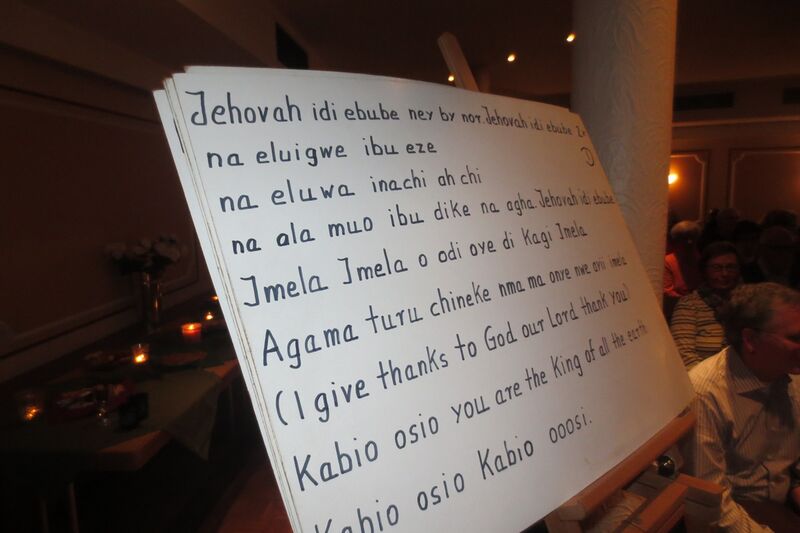 Jehovah idi ebube ney by nor. Jehovah idi ebube 2x
na eluigwe ibu eze
na eluwa inachi ah chi
na ala muo ibu dike na agha. Jehovah idi ebube
Imela Imela o odi oye di Kagi Imela
Agama turu chineke nma ma onye nwe ayii imela
(I give thanks to God our Lord thank you)
Kabio osio you are the King of all the earth
Kabio osio Kabio ooosi.
Kabio osio Kabio